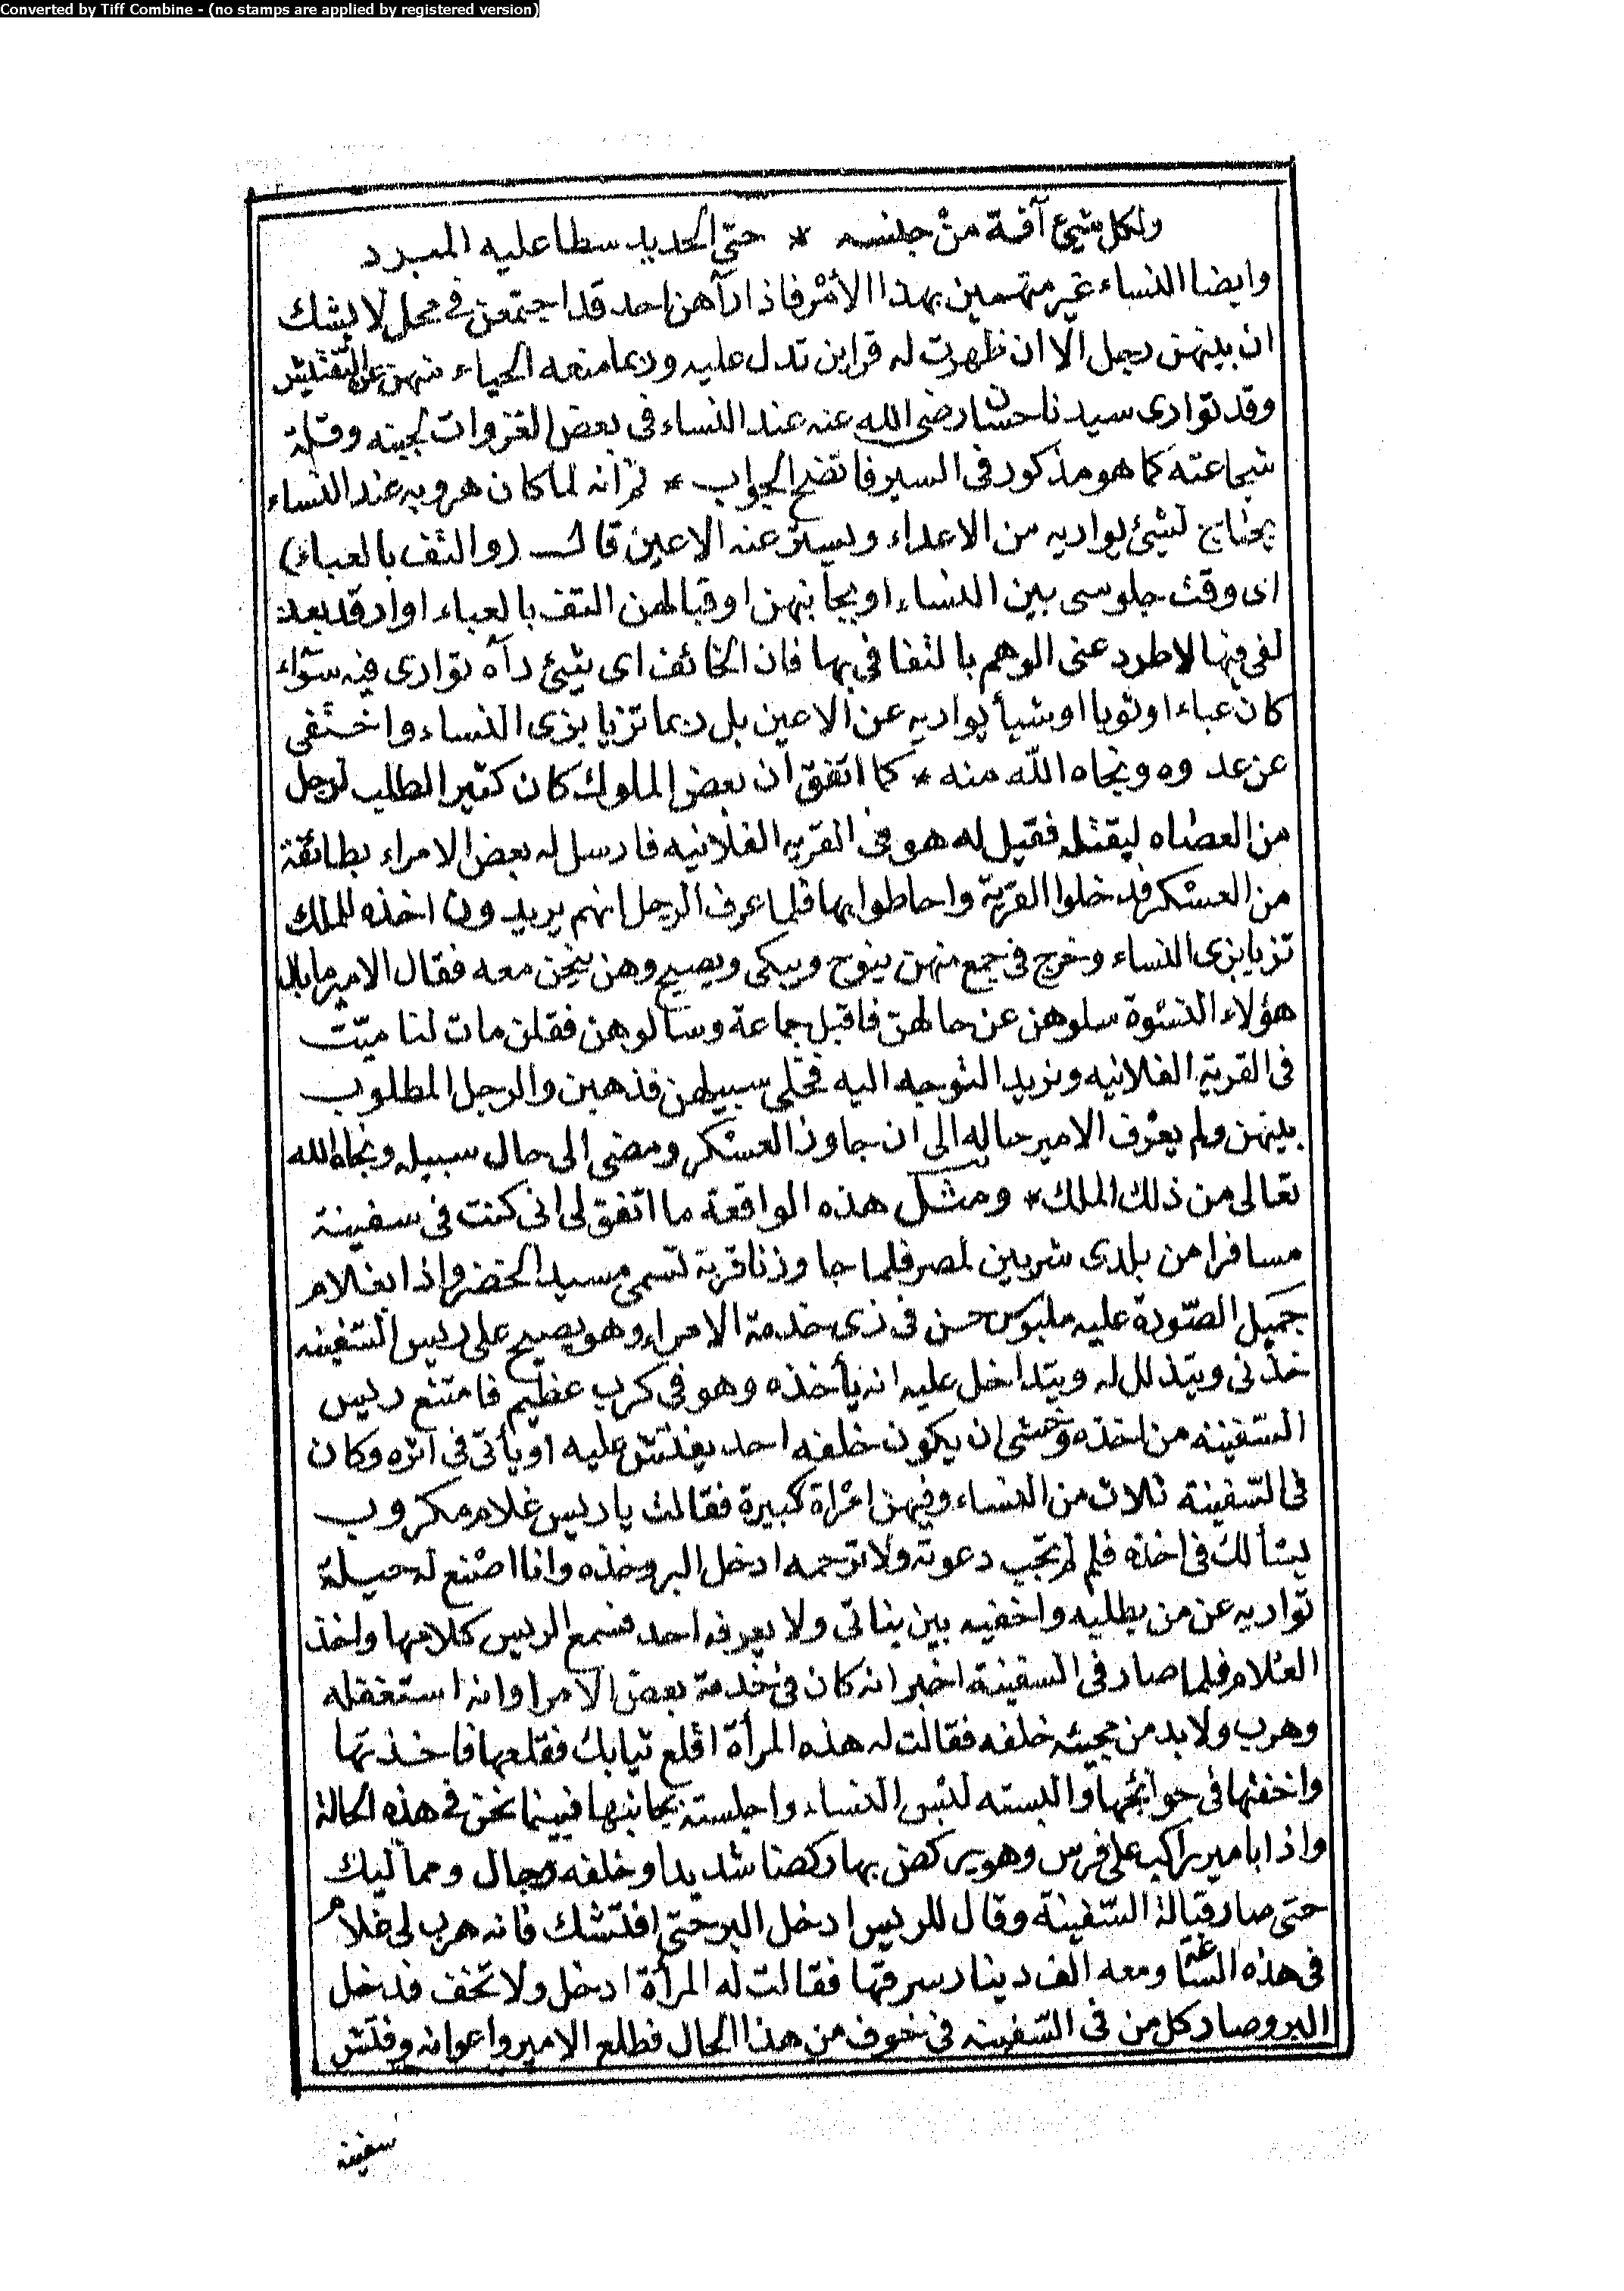 Converted by Tiff Combine - (no stamps are applied by registered version)
ولكل شيئ آفة من جنسه * حتى الحديد سطا عليه المبرد
وايضا النساء غير متهمين بهذا الأمر فاذا رآهن احد قد اجتمعن في محل لا يشك
ان بينهن رجل الا ان ظهرت له قراين تدل عليه وربما منعه الحياء منهن عن التفتيش
وقد توارى سيدنا حسان رضى الله عنه عند النساء فى بعض الغزوات لجبنه وقلة
شجاعته كما هو مذكور فى السير فاتضح الجواب * ثم انه لما كان هروبه عند النساء
يحتاج لشيئ يواريه من الاعداء ويستر عنه الاعين قال (والتف بالعباء)
اى وقت جلوسى بين النساء او بجانبهن او قبالهن التف بالعباء او ارقد بعد
لفى فيها لاطرد عنى الوهم بالتفافى بها فان الخائف اى شيئ رآه توارى فيه سواء
كان عباء او ثوبا او شيأ يواريه عن الاعين بل ربما تزيا بزى النساء واختفى
عن عدوه ونجاه الله منه * كما اتفق ان بعض الملوك كان كثير الطلب لرجل
من العصاه ليقتله فقيل له هو فى القريه الفلانيه فارسل له بعض الامراء بطائفة
من العسكر فدخلوا القرية واحاطوا بها فلما عرف الرجل انهم يريدون اخذه للملك
تزيا بزى النساء وخرج فى جمع منهن ينوح ويبكى ويصيح وهن ينحن معه فقال الامير ما بال
هؤلاء النسوة سلوهن عن حالهن فاقبل جماعة وسألوهن فقلن مات لنا ميت
فى القرية الفلانيه ونريد التوجه اليه فخلى سبيلهن فذهبن والرجل المطلوب
بينهن ولم يعرف الامير حاله الى ان جاوز العسكر ومضى الى حال سبيله ونجاه الله
تعالى من ذلك الملك * ومثل هذه الواقعة ما اتفق لى انى كنت فى سفينة
مسافرا من بلدى شربين لمصر فلما جاوزنا قرية تسمى مسيد الخضر واذا بغلام
جميل الصورة عليه ملبوس حسن فى زى خدمة الامراء وهو يصيح على ريس السفينه
خذنى ويتذلل له ويتداخل عليه انه يأخذه وهو فى كرب عظيم فامتنع ريس
السفينه من اخذه وخشى ان يكون خلفه احد يفتش عليه او يأتى فى اثره وكان
فى السفينة ثلاث من النساء وفيهن امرأة كبيرة فقالت يا ريس غلام مكروب
يسألك فى اخذه فلم لم تجب دعوته ولا ترحمه ادخل البر وخذه وانا اصنع له حيلة
تواريه عن من يطلبه واخفيه بين بناتى ولا يعرفه احد فسمع الريس كلامها واخذ
الغلام فلما صار فى السفينة اخبر انه كان فى خدمة بعض الامرا وانه استغفله
وهرب ولابد من مجيئه خلفه فقالت له هذه المرأة اقلع ثيابك فقلعها فاخذتها
واخفتها فى حوائجها والبسته لبس النساء واجلسته بجانبها فبينما نحن فى هذه الحالة
واذا بامير راكب على فرس وهو يركض بها ركضا شديدا وخلفه رجال ومماليك
حتى صار قبالة السفينة وقال للريس ادخل البر حتى افتشك فانه هرب لى غلام
فى هذه الساعة ومعه الف دينار سرقها فقالت له المرأة ادخل ولا تخف فدخل
البر وصار كل من فى السفينه فى خوف من هذا الحال فطلع الامير واعوانه وفتش
سفينه